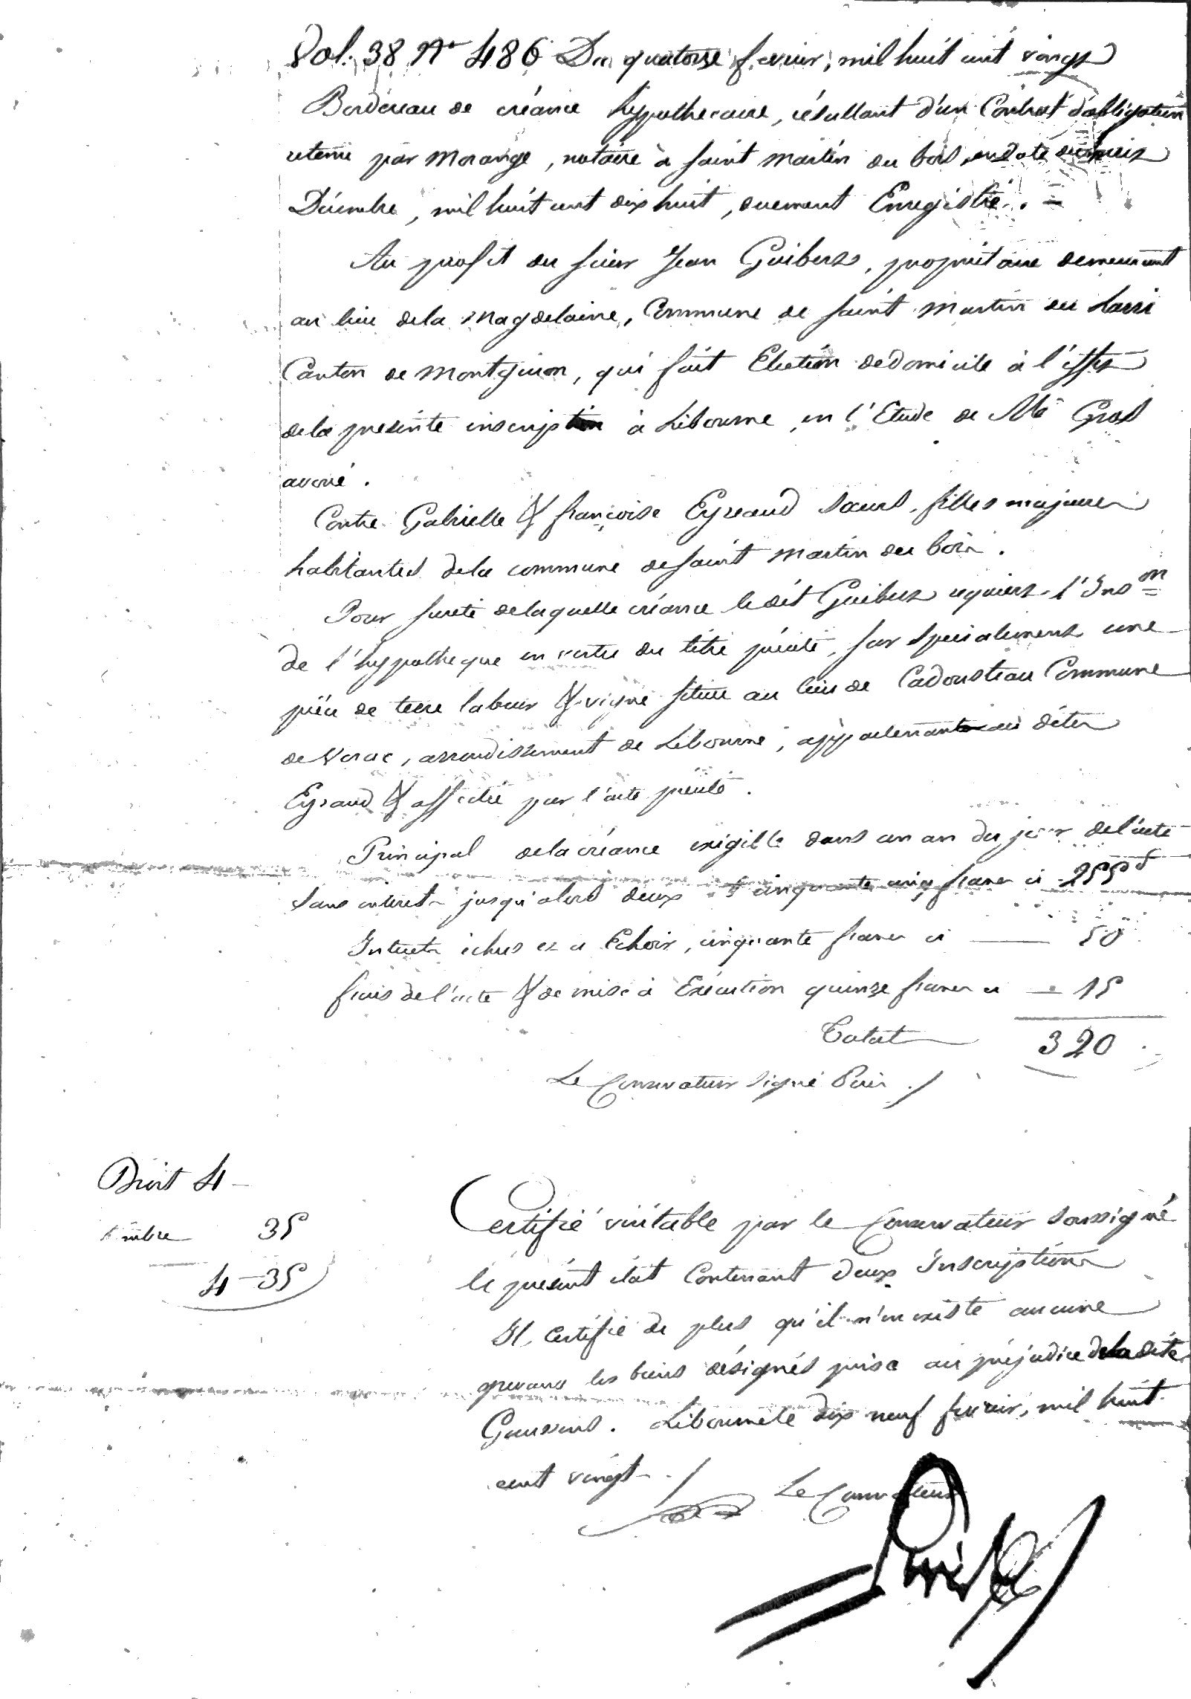 Vol. 38 N° 486 Du quatorze fevrier, mil huit cent vingt
Bordereau de créance hypothecaire, résultant d'un Contrat d'obligation
retenu par Morange, notaire à Saint Martin du bois, en date du
Décembre, mil huit cent dix huit, duement Enregistré.
Au profit du sieur Jean Guibert, propriétaire demeurant
au lieu de la Magdelaine, Commune de Saint Martin du
Canton de Montguion, qui fait Election de domicile à l'effet
de la presente inscription à Libourne, en l'Etude de Me Gros
avoué.
Contre Gabrielle & françoise Eyreaud soeurs, filles majeures
habitantes de la commune de Saint Martin du bois.
Pour sureté de laquelle créance le dit Guibert requiert l'Inson
de l'hypotheque en vertu du titre précité, sur specialement une
pièce de terre labour & vigne située au lieu de Cadousteau Commune
de Verac, arrondissement de Libourne, appartenante aux dites
Eyraud & affectée par l'acte précité.
Principal de la créance exigible dans un an du jour de l'acte
sans interet jusqu'alors deux ct cinquante cinq francs ci 255 f
Interets échus et à Echoir, cinquante francs ci 50
frais de l'acte & de mise à Exécution quinze francs ci 15
Total 320
Le Conservateur signé
Droit 4 -
timbre 35
4 - 35
Certifié véritable par le Conservateur soussigné
le présent état Contenant deux Inscriptions
Il Certifie de plus qu'il n'en existe aucune
grevant les biens désignés prise au préjudice de la dite
Gaussens. Libourne le dix neuf fevrier, mil huit
cent vingt ./
Le Conservateur